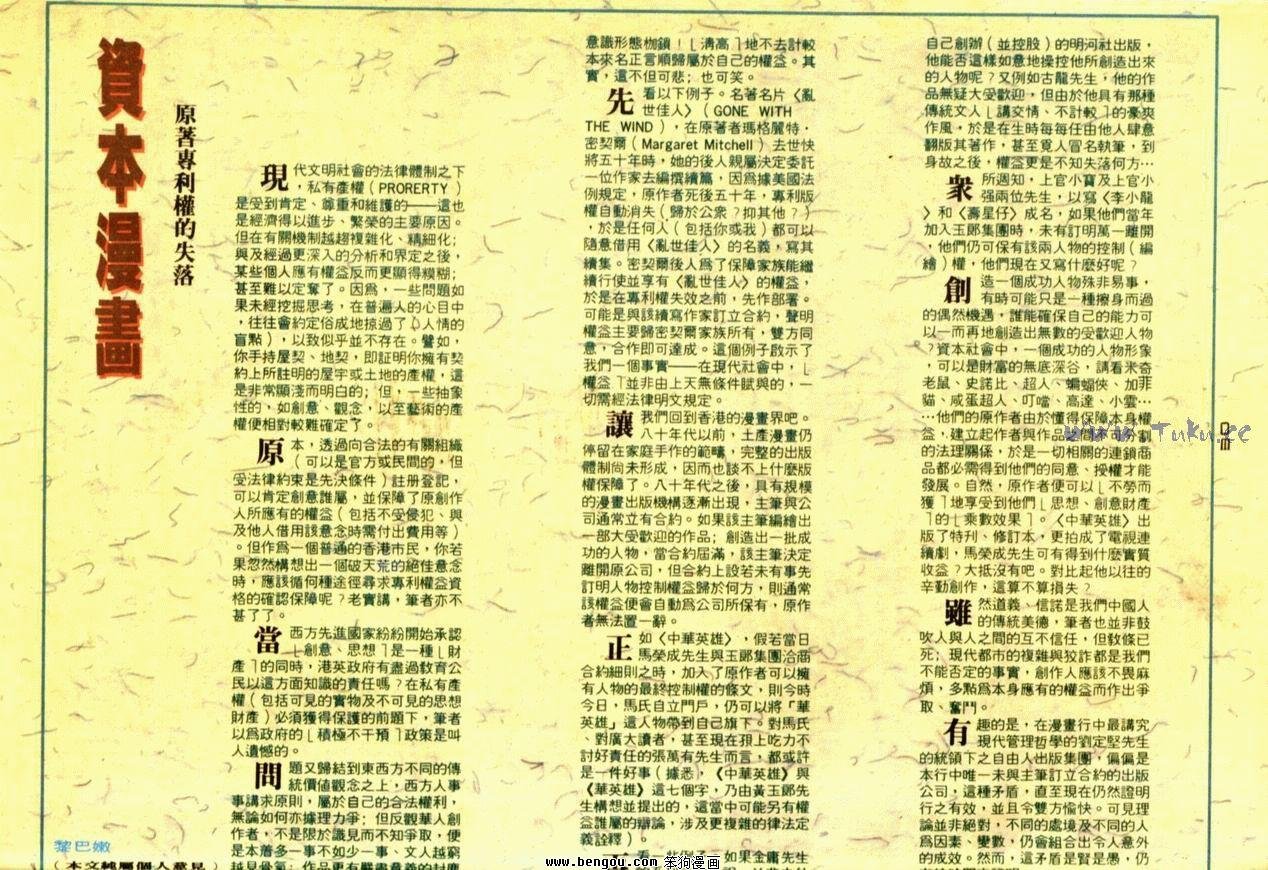 資本漫畫
原著專利權的失落
現代文明社會的法律體制之下
，私有產權（PRORERTY）
是受到肯定、尊重和維護的——這也
是經濟得以進步、繁榮的主要原因。
但在有關機制越趨複雜化、精細化；
與及經過更深入的分析和界定之後，
某些個人應有權益反而更顯得糢糊；
甚至難以定奪了。因爲，一些問題如
果未經挖掘思考，在普遍人的心目中
，往往會約定俗成地掠過了（人情的
盲點），以致似乎並不存在。譬如，
你手持屋契、地契，即証明你擁有契
約上所註明的屋宇或土地的產權，這
是非常顯淺而明白的；但，一些抽象
性的，如創意、觀念，以至藝術的產
權便相對較難確定了。
原本，透過向合法的有關組織
（可以是官方或民間的，但
受法律約束是先決條件）註册登記，
可以肯定創意誰屬，並保障了原創作
人所應有的權益（包括不受侵犯、與
及他人借用該意念時需付出費用等）
。但作爲一個普通的香港市民，你若
果忽然構想出一個破天荒的絕佳意念
時，應該循何種途徑尋求專利權益資
格的確認保障呢？老實講，筆者亦不
甚了了。
當西方先進國家紛紛開始承認
﹂創意、思想﹁是一種﹂財
產﹁的同時，港英政府有盡過教育公
民以這方面知識的責任嗎？在私有產
權（包括可見的實物及不可見的思想
財產）必須獲得保護的前題下，筆者
以爲政府的﹂積極不干預﹁政策是叫
人遺憾的。
問題又歸結到東西方不同的傳
統價值觀念之上，西方人事
事講求原則，屬於自己的合法權利，
無論如何亦據理力爭；但反觀華人創
作者，不是限於識見而不知爭取，便
是本着多一事不如少一事、文人越窮
黎巴嫩
意識形態枷鎖！﹂淸高﹁地不去計較
本來名正言順歸屬於自己的權益。其
實，這不但可悲；也可笑。
先看以下例子。名著名片〈亂
世佳人〉（GONE WITH
THE WIND），在原著者瑪格麗特·
密契爾（Margaret Mitchell）去世快
將五十年時，她的後人親屬決定委託
一位作家去編撰續篇，因爲據美國法
例規定，原作者死後五十年，專利版
權自動消失（歸於公衆？抑其他？）
，於是任何人（包括你或我）都可以
隨意借用〈亂世佳人〉的名義，寫其
續集。密契爾後人爲了保障家族能繼
續行使並享有〈亂世佳人〉的權益，
於是在專利權失效之前，先作部署。
可能是與該續寫作家訂立合約，聲明
權益主要歸密契爾家族所有，雙方同
意，合作即可達成。這個例子啟示了
我們一個事實——在現代社會中，﹂
權益﹁並非由上天無條件賦與的，一
切需經法律明文規定。
讓我們回到香港的漫畫界吧。
八十年代以前，土產漫畫仍
停留在家庭手作的範疇，完整的出版
體制尚未形成，因而也談不上什麼版
權保障了。八十年代之後，具有規模
的漫畫出版機構逐漸出現，主筆與公
司通常立有合約。如果該主筆編繪出
一部大受歡迎的作品；創造出一批成
功的人物，當合約屆滿，該主筆決定
離開原公司，但合約上設若未有事先
訂明人物控制權益歸於何方，則通常
該權益便會自動爲公司所保有，原作
者無法置一辭。
正如〈中華英雄〉，假若當日
馬榮成先生與玉郎集團洽商
合約細則之時，加入了原作者可以擁
有人物的最終控制權的條文，則今時
今日，馬氏自立門戶，仍可以將「華
英雄」這人物帶到自己旗下。對馬氏
、對廣大讀者，甚至現在頂上吃力不
討好責任的張萬有先生而言，都或許
是一件好事（據悉，《中華英雄》與
《華英雄》這七個字，乃由黃玉郎先
生構想並提出的，這當中可能另有權
益誰屬的辯論，涉及更複雜的律法定
義詮釋）。
看一些例子，如果金庸先生
自己創辦（並控股）的明河社出版，
他能否這樣如意地操控他所創造出來
的人物呢？又例如古龍先生，他的作
品無疑大受歡迎，但由於他具有那種
傳統文人﹂講交情、不計較﹁的豪爽
作風，於是在生時每每任由他人肆意
翻版其著作，甚至覓人冒名執筆，到
身故之後，權益更是不知失落何方…
衆所週知，上官小寶及上官小
强兩位先生，以寫〈李小龍
〉和〈壽星仔〉成名，如果他們當年
加入玉郎集團時，未有訂明萬一離開
，他們仍可保有該兩人物的控制（編
繪）權，他們現在又寫什麼好呢？
創造一個成功人物殊非易事，
有時可能只是一種擦身而過
的偶然機遇，誰能確保自己的能力可
以一而再地創造出無數的受歡迎人物
？資本社會中，一個成功的人物形象
，可以是財富的無底深谷，請看米奇
老鼠、史諾比、超人、蝙蝠俠、加菲
貓、咸蛋超人、叮噹、高達、小雲…
…他們的原作者由於懂得保障本身權
益，建立起作者與作品之間不可分割
的法理關係，於是一切相關的連鎖商
品都必需得到他們的同意、授權才能
發展。自然，原作者便可以﹂不勞而
獲﹁地享受到他們﹂思想、創意財產
﹁的﹂乘數效果﹁。〈中華英雄〉出
版了特刊、修訂本，更拍成了電視連
續劇，馬榮成先生可有得到什麼實質
收益？大抵沒有吧。對比起他以往的
辛勤創作，這算不算損失？
雖然道義、信諾是我們中國人
的傳統美德，筆者也並非鼓
吹人與人之間的互不信任，但敎條已
死；現代都市的複雜與狡詐都是我們
不能否定的事實，創作人應該不畏麻
煩，多點爲本身應有的權益而作出爭
取、奮鬥。
有趣的是，在漫畫行中最講究
現代管理哲學的劉定堅先生
的統領下之自由人出版集團，偏偏是
本行中唯一未與主筆訂立合約的出版
公司，這種矛盾，直至現在仍然證明
行之有效，並且令雙方愉快。可見理
論並非絕對，不同的處境及不同的人
爲因素、變數，仍會組合出令人意外
的成效。然而，這矛盾是賢是愚，仍
www.Tuku.cc
www.bengou.com 笨狗漫画